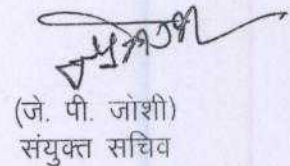 (जे. पी. जोशी)
संयुक्त सचिव